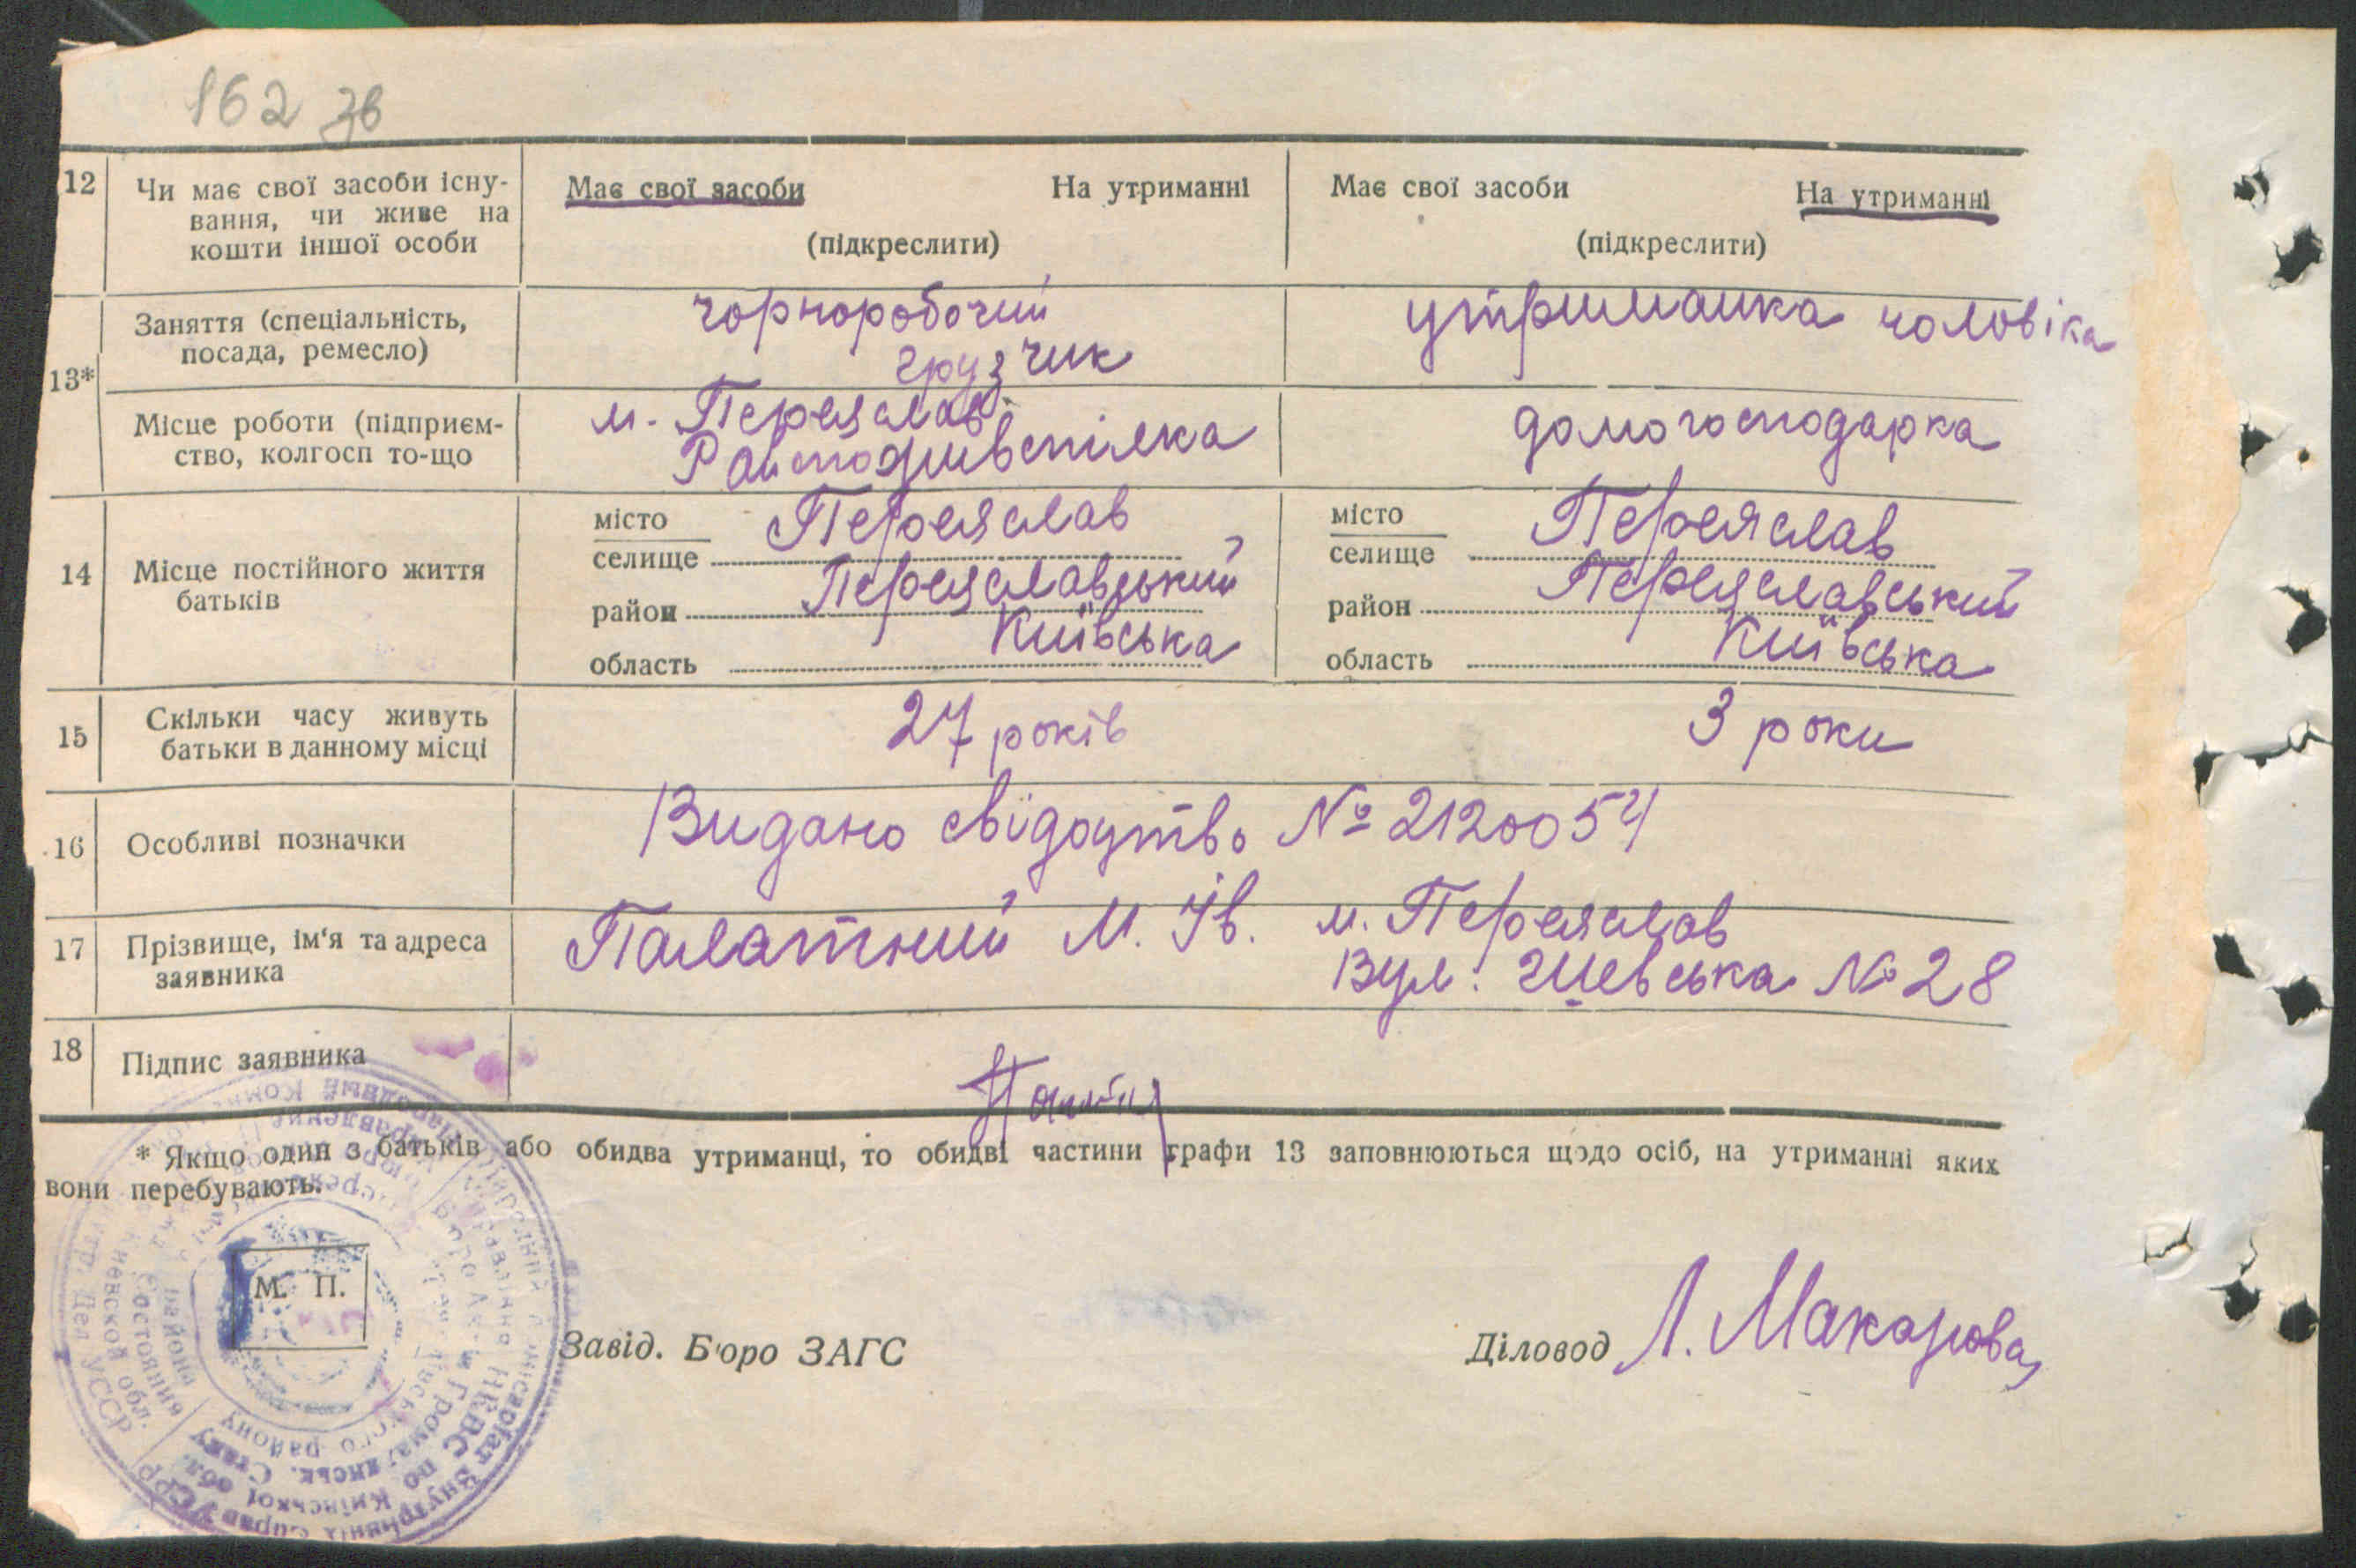 162 зв
12 Чи має свої засоби існу-
вання, чи живе на
кошти іншої особи
Має свої засоби На утриманні
(підкреслити)
Має свої засоби На утриманні
(підкреслити)
13*
Заняття (спеціальність,
посада, ремесло)
чорноробочий
грузчик
утриманка чоловіка
Місце роботи (підприєм-
ство, колгосп то-що
м. Переяслав
Райспоживспілка
домогосподарка
14 Місце постійного життя
батьків
місто Переяслав
селище
район Переяславський
область Київська
місто Переяслав
селище
район Переяславський
область Київська
15 Скільки часу живуть
батьки в данному місці
27 років
3 роки
16 Особливі позначки
Видано свідоцтво № 2120054
17 Прізвище, ім'я та адреса
заявника
Палатний М. Ів. м. Переяслав
Вул. № 28
18 Підпис заявника
* Якщо один з батьків або обидва утриманці, то обидві частини графи 13 заповнюються щодо осіб, на утриманні яких
вони перебувають.
М. П.
Завід. Бюро ЗАГС
Діловод Л. Макарова